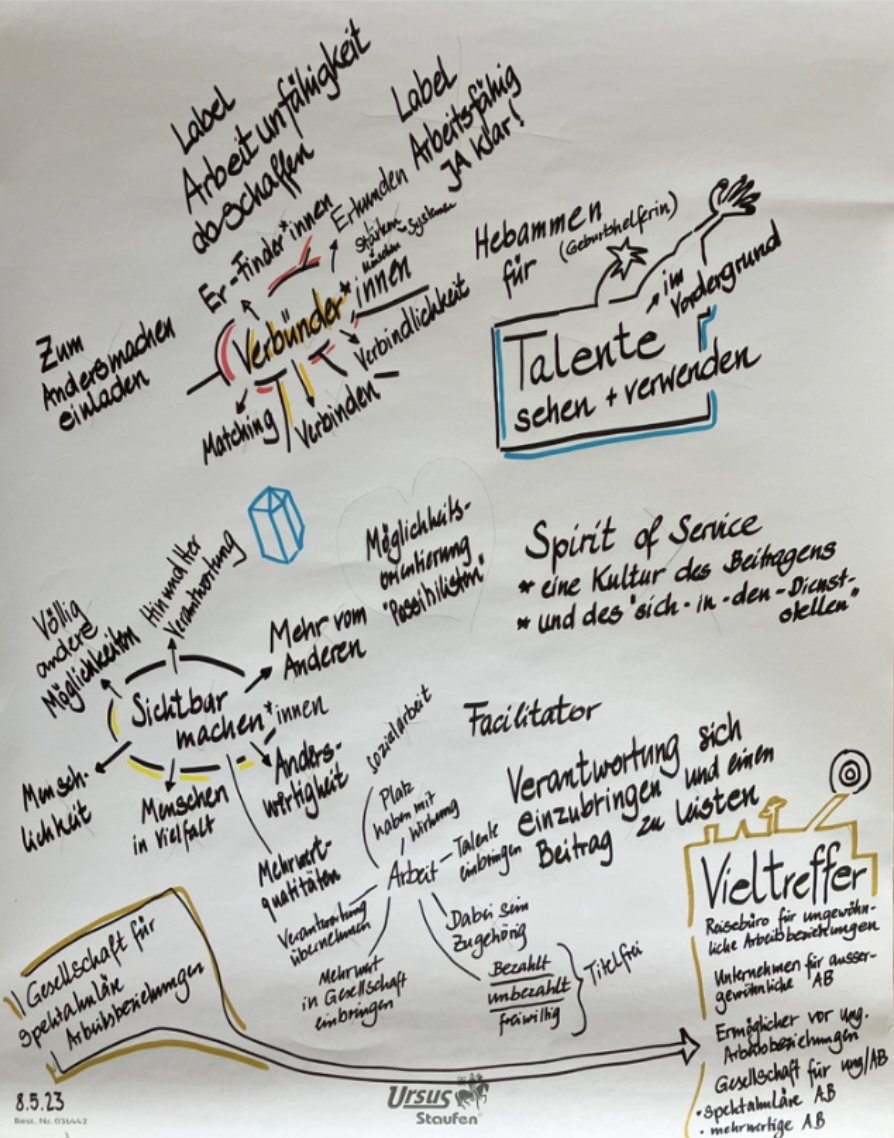 Label
Arbeitunfähigkeit
abschaffen
Label
Arbeitsfähig
JA klar!
Er-Finder*innen
Erkunden
Stärken
Menschen-Systemen
Verbünder*innen
Verbindlichkeit
Verbinden
Matching
Zum
Andersmachen
einladen
Hebammen
für (Geburtshelferin)
im
Vordergrund
Talente
sehen + verwenden
Möglichkeits-
orientierung
"Possibilisten"
Spirit of Service
* eine Kultur des Beitragens
* und des "sich-in-den-Dienst-
stellen"
Völlig
andere
Möglichkeiten
Hin und Her
Verantwortung
Mehr vom
Anderen
Sichtbar
machen*innen
Anders-
wertigkeit
Menschen
in Vielfalt
Mensch-
lichkeit
Mehrwert-
qualitäten
Sozialarbeit
Platz
haben mit
Wirkung
Arbeit
Talente
einbringen
Dabei sein
Zugehörig
Bezahlt
unbezahlt
freiwillig
Titelfrei
Verantwortung
übernehmen
Mehrwert
in Gesellschaft
einbringen
Facilitator
Verantwortung sich
einzubringen und einen
Beitrag zu leisten
Gesellschaft für
spektakuläre
Arbeitsbeziehungen
Vieltreffer
Reisebüro für ungewöhn-
liche Arbeitsbeziehungen
Unternehmen für ausser-
gewöhnliche AB
Ermöglicher vor ung.
Arbeitsbeziehungen
Gesellschaft für ung/AB
• spektakuläre AB
• mehrwertige AB
8.5.23
Best. Nr. 036442
Ursus
Staufen